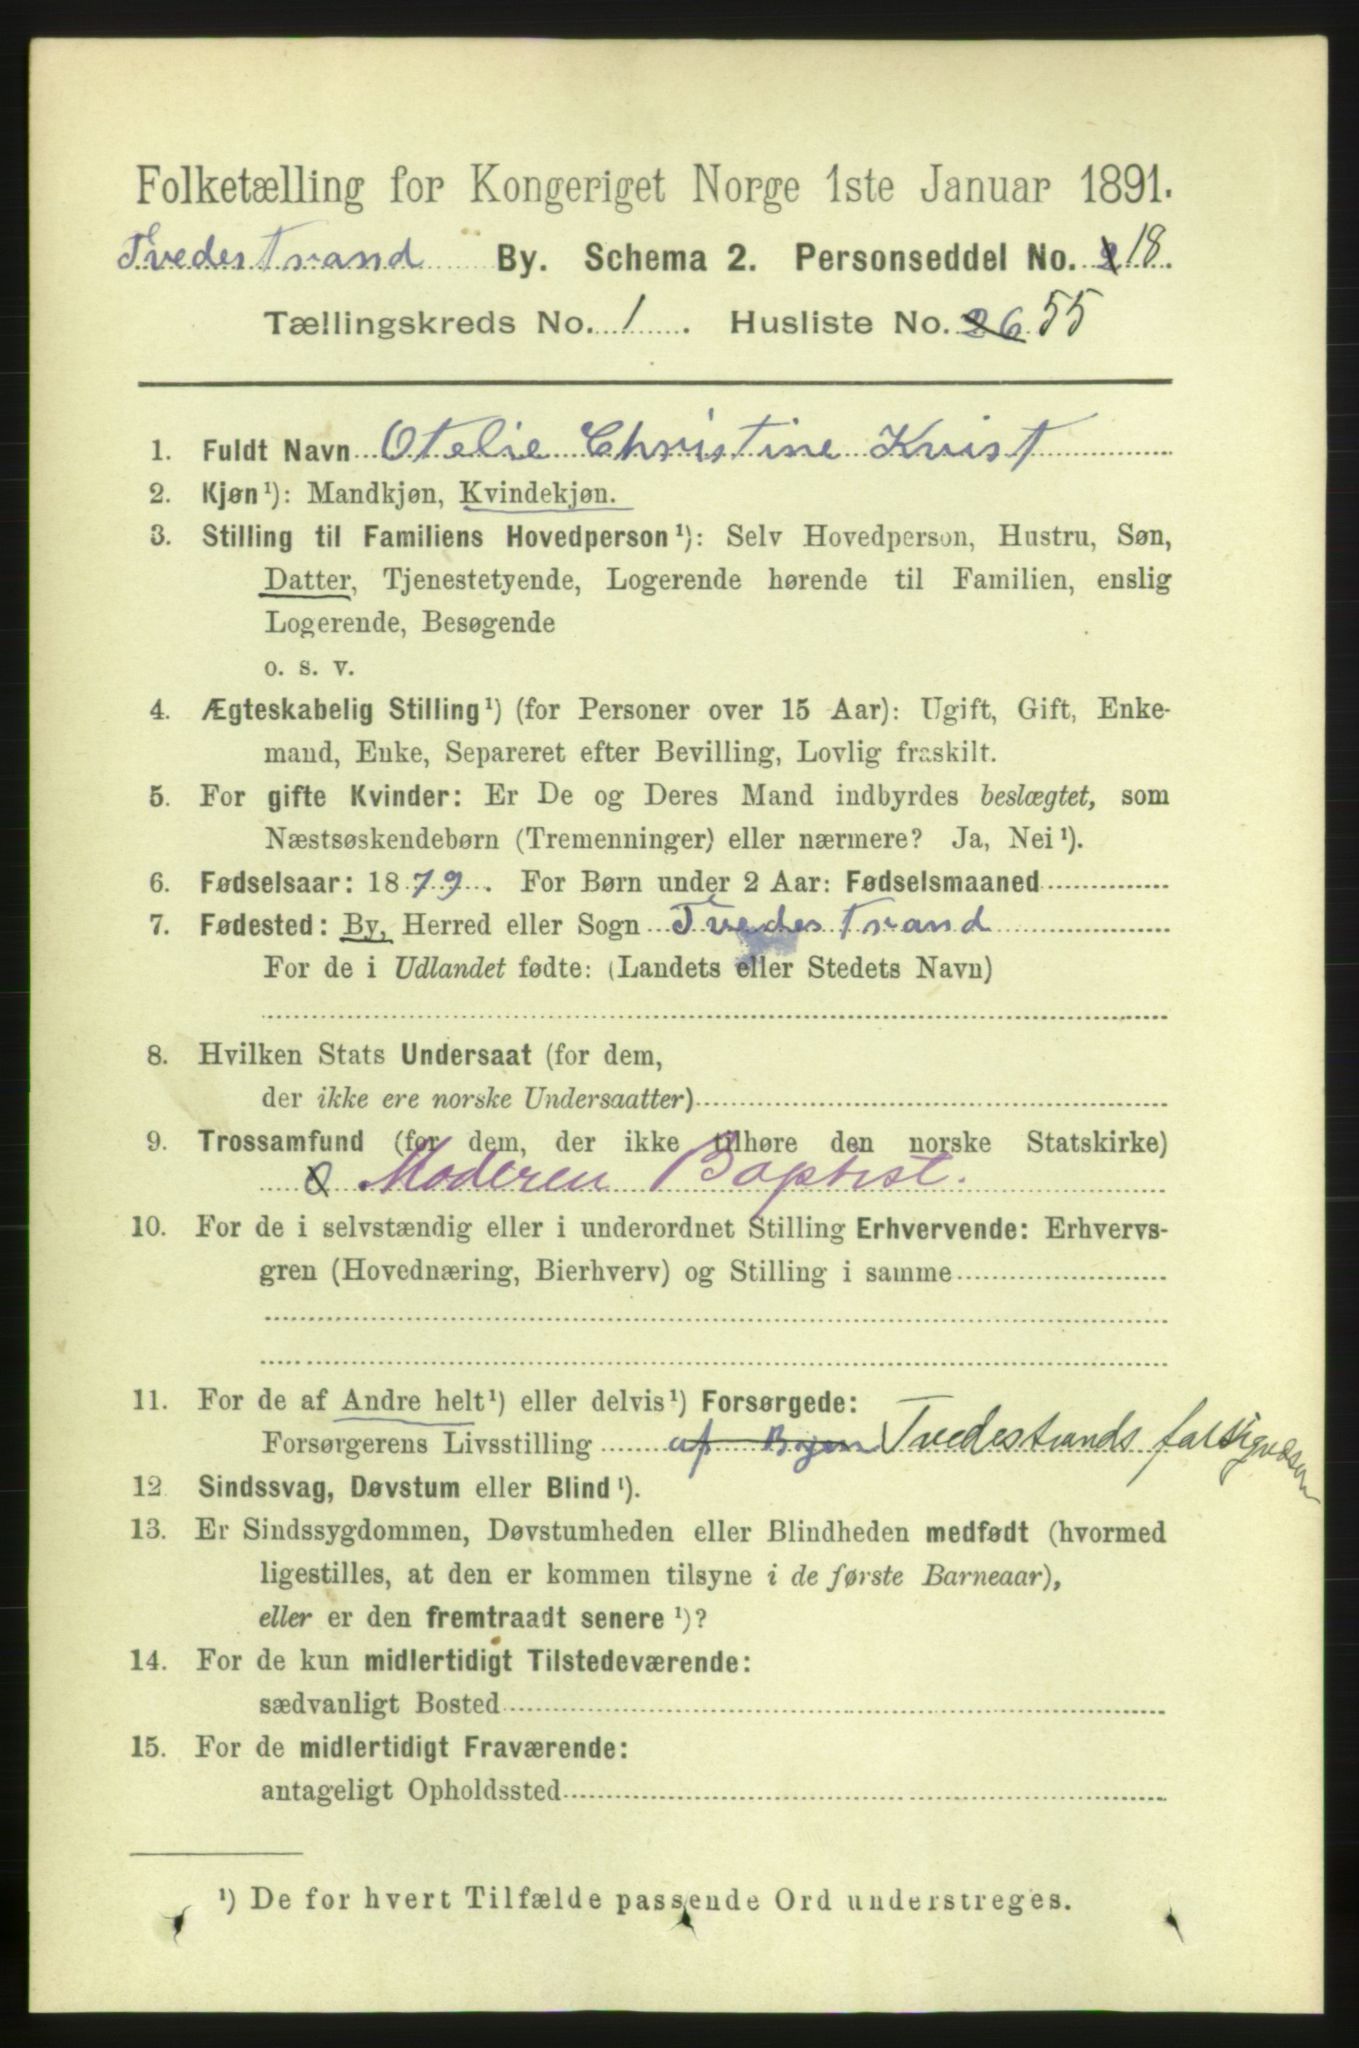 Folketælling for Kongeriget Norge 1ste Januar 1891.
Tvedestrand By. Schema 2. Personseddel No. 2 18.
Tællingskreds No. 1. Husliste No. 26 55
1. Fuldt Navn Otelie Christine Kvist
2. Kjøn¹): Mandkjøn, Kvindekjøn.
3. Stilling til Familiens Hovedperson¹): Selv Hovedperson, Hustru, Søn,
Datter, Tjenestetyende, Logerende hørende til Familien, enslig
Logerende, Besøgende
o. s. v.
4. Ægteskabelig Stilling¹) (for Personer over 15 Aar): Ugift, Gift, Enke-
mand, Enke, Separeret efter Bevilling, Lovlig fraskilt.
5. For gifte Kvinder: Er De og Deres Mand indbyrdes beslægtet, som
Næstsøskendebørn (Tremenninger) eller nærmere? Ja, Nei¹).
6. Fødselsaar: 1879. For Børn under 2 Aar: Fødselsmaaned
7. Fødested: By, Herred eller Sogn Tvedestrand
For de i Udlandet fødte: (Landets eller Stedets Navn)
8. Hvilken Stats Undersaat (for dem,
der ikke ere norske Undersaatter)
9. Trossamfund (for dem, der ikke tilhøre den norske Statskirke)
Moderen Baptist.
10. For de i selvstændig eller i underordnet Stilling Erhvervende: Erhvervs-
gren (Hovednæring, Bierhverv) og Stilling i samme
11. For de af Andre helt¹) eller delvis¹) Forsørgede:
Forsørgerens Livsstilling af Byen Tvedestrands fattigvæsen
12 Sindssvag, Døvstum eller Blind¹).
13. Er Sindssygdommen, Døvstumheden eller Blindheden medfødt (hvormed
ligestilles, at den er kommen tilsyne i de første Barneaar),
eller er den fremtraadt senere¹)?
14. For de kun midlertidigt Tilstedeværende:
sædvanligt Bosted
15. For de midlertidigt Fraværende:
antageligt Opholdssted
¹) De for hvert Tilfælde passende Ord understreges.